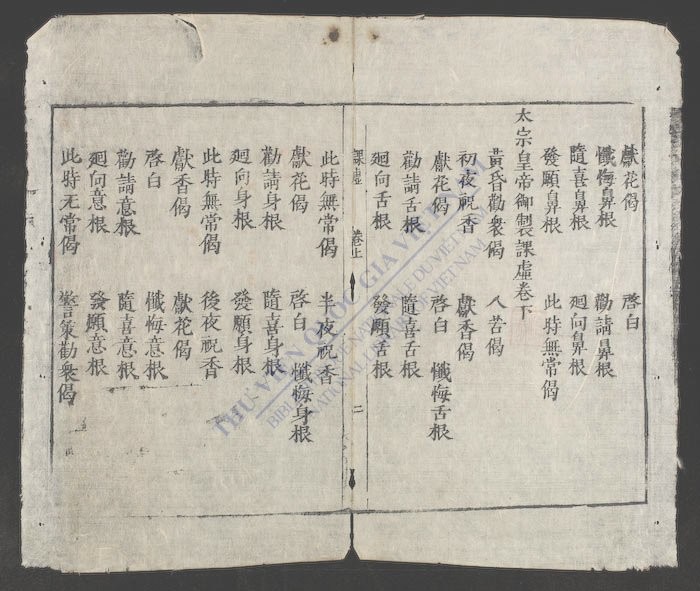 獻花偈 啓白
懺悔鼻根 勸請鼻根
隨喜鼻根 廻向鼻根
發願鼻根 此時無常偈
太宗皇帝御製課虛卷下
黃昏勸衆偈 八苦偈
初夜祝香 獻香偈
獻花偈 啓白 懺悔舌根
勸請舌根 隨喜舌根
廻向舌根 發願舌根
課虛 卷上 二
此時無常偈 半夜祝香
獻花偈 啓白 懺悔身根
勸請身根 隨喜身根
廻向身根 發願身根
此時無常偈 後夜祝香
獻香偈 獻花偈
啓白 懺悔意根
勸請意根 隨喜意根
廻向意根 發願意根
此時无常偈 警策勸衆偈
THƯ VIỆN QUỐC GIA VIỆT NAM
BIBLIOTHÈQUE NATIONALE DU VIETNAM
NATIONAL LIBRARY OF VIETNAM